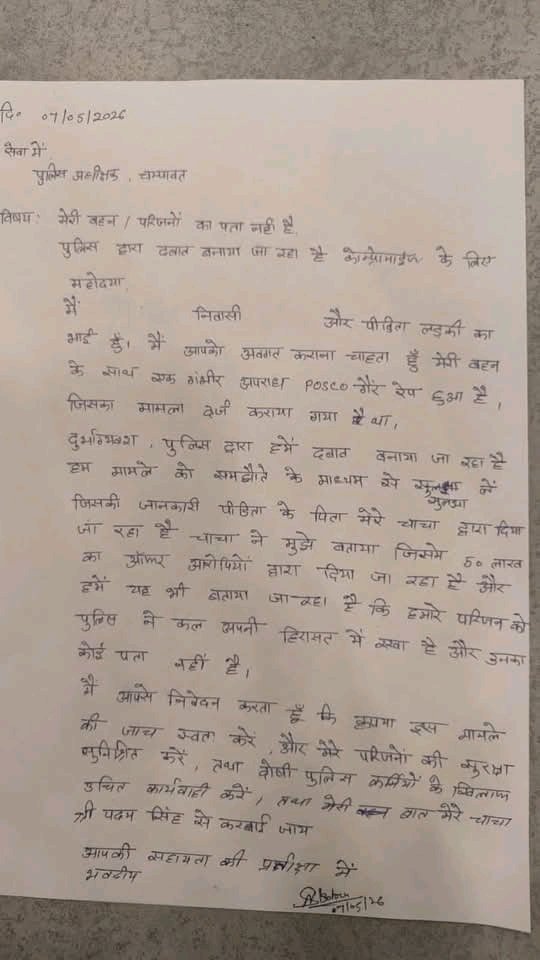 दि० 07/05/2026
सेवा में
पुलिस अधीक्षक, चम्पावत
विषय: मेरी बहन / परिजनों का पता नहीं है
पुलिस द्वारा दवाब बनाया जा रहा है कोम्प्रोमाईज के लिए
महोदया,
मैं निवासी और पीडिता लड़की का
भाई हुँ। मैं आपको अवगत कराना चाहता हुँ मेरी बहन
के साथ एक गंभीर अपराध POSCO गैंग रेप हुआ है,
जिसका मामला दर्ज कराया गया है था,
दुर्भाग्यवश, पुलिस द्वारा हमें दवाब बनाया जा रहा है
हम मामले को समझौते के माध्यम से सुलझा लें
जिसकी जानकारी पीडिता के पिता मेरे चाचा द्वारा दिया
जा रहा है चाचा ने मुझे बताया जिसमे 50 लाख
का ऑफर आरोपियों द्वारा दिया जा रहा है और
हमें यह भी बताया जा रहा है कि हमारे परिजन को
पुलिस ने कल अपनी हिरासत में रखा है और उनका
कोई पता नहीं है।
मैं आपसे निवेदन करता हुँ कि कृपया इस मामले
की जाच स्वता करें, और मेरे परिजनों की सुरक्षा
सुनिश्चित करें, तथा दोषी पुलिस कर्मियों के खिलाफ
उचित कार्यवाही करें, तथा मेरी बात मेरे चाचा
श्री पदम सिंह से करवाई जाय
आपकी सहायता की प्रतीक्षा में
भवदीय
07/05/26